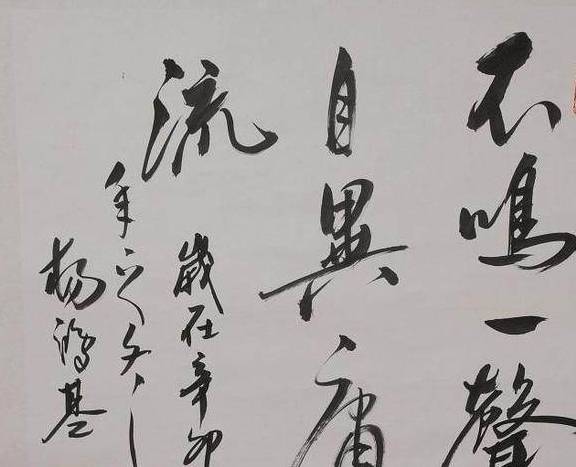 不鳴一聲
自異庸
流
歲在辛卯
年之冬
楊鴻基